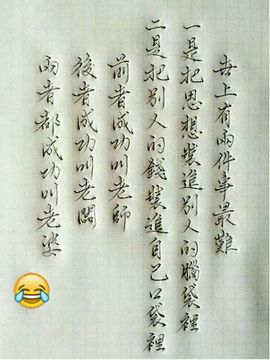 世上有兩件事最難
一是把思想裝進別人的腦袋裡
二是把別人的錢裝進自己口袋裡
前者成功叫老師
後者成功叫老闆
兩者都成功叫老婆